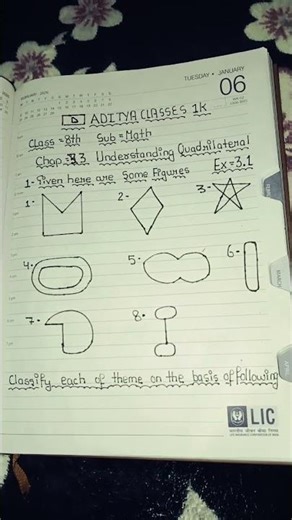 TUESDAY • JANUARY
06
D ADITYA CLASSES 1K
Class = 8th Sub = Math
Chap = 3 Understanding Quadrilateral
Ex = 3.1
1- Given here are Some Figures
1- 2- 3-
4- 5- 6-
7- 8-
Classify each of theme on the basis of following
LIC
भारतीय जीवन बीमा निगम
LIFE INSURANCE CORPORATION OF INDIA